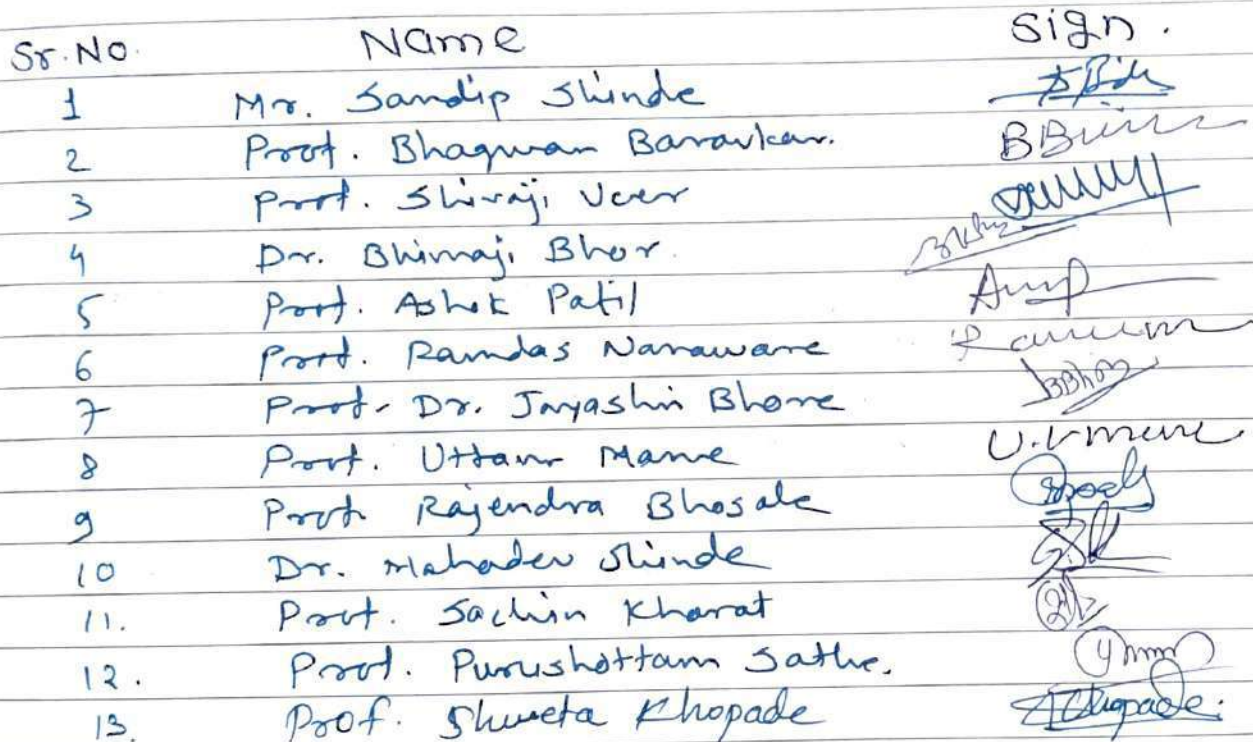 Sr. No. Name Sign.
1 Mr. Sandip Shinde
2 Prof. Bhagwan Baravkar. B
3 Prof. Shivaji Veer
4 Dr. Bhimaji Bhor
5 Prof. Ashok Patil
6 Prof. Ramdas Narawane
7 Prof. Dr. Jayashri Bhore BBhor
8 Prof. Uttam Mane U.V mane
9 Prof. Rajendra Bhosale
10 Dr. Mahadev Shinde
11. Prof. Sachin Kharat
12. Prof. Purushottam Sathe.
13. Prof. Shweta Khopade